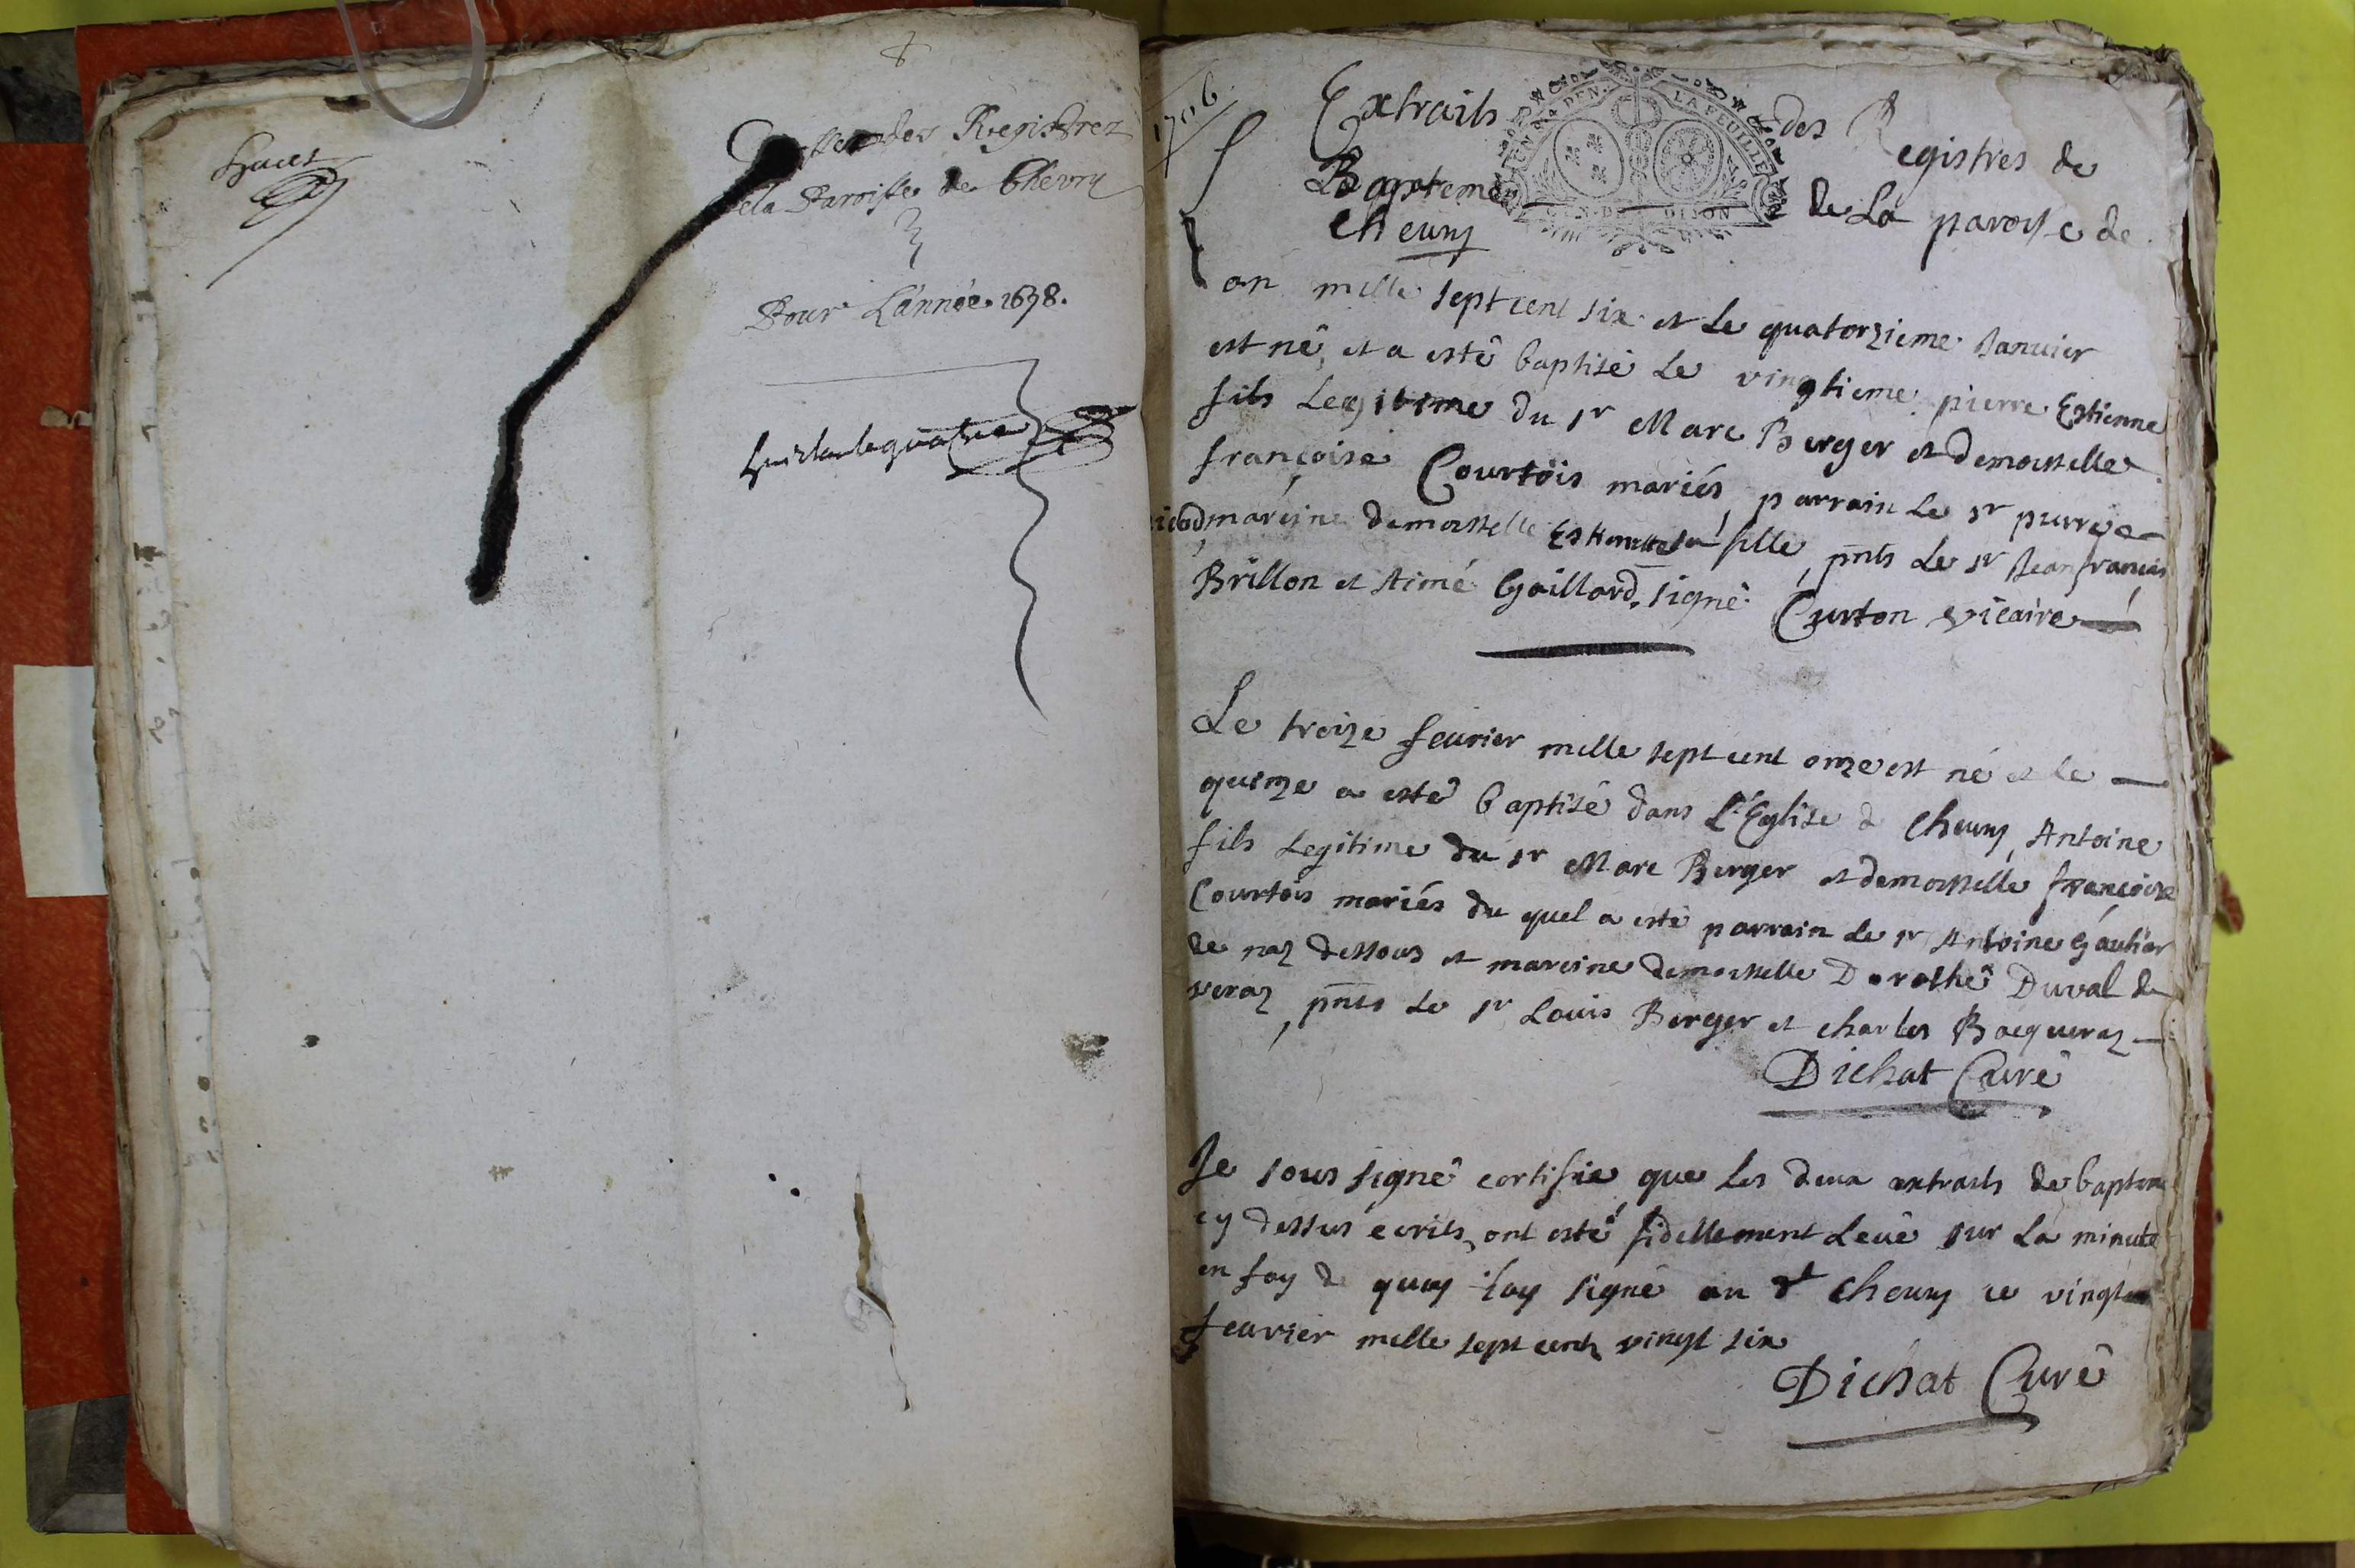 des Registrez
de la Paroisse de Chevry
Pour L'année 1698.
1706
Extraits des Registres de
Baptemes de La paroisse de
Cheury
GEN. DE DIJON
LA FEUILLE
L'an mille sept cent six et Le quatorzieme Januier
est né, et a esté baptisé Le vingtieme pierre Estienne
fils Legitime du sr Marc Berger et demoiselle
françoise Courtois mariés, parrain Le sr pierre
mareine demoiselle Estiennette sa fille, pnts Le sr Jean françois
Brillon et Aimé Gaillard, signé Curton vicaire
Le treize feurier mille sept cent onze est né et le
quinze a esté baptisé dans L'Eglise de Cheury, Antoine
fils Legitime du sr Marc Berger et demoiselle françoise
Courtois mariés du quel a esté parrain Le sr Antoine Gautier
de naz dessous et mareine demoiselle Dorothé Duval de
veraz, pnts Le sr Louis Berger et charles Bacqueraz
Dichat Curé
Je sous signé certifie que Les deux extraits de baptême
cy dessus ecrits, ont esté fidellement Levé sur La minute
en foy de quoy j'ay signé au dt Cheury ce vingt
feurier mille sept cents vingt six
Dichat Curé